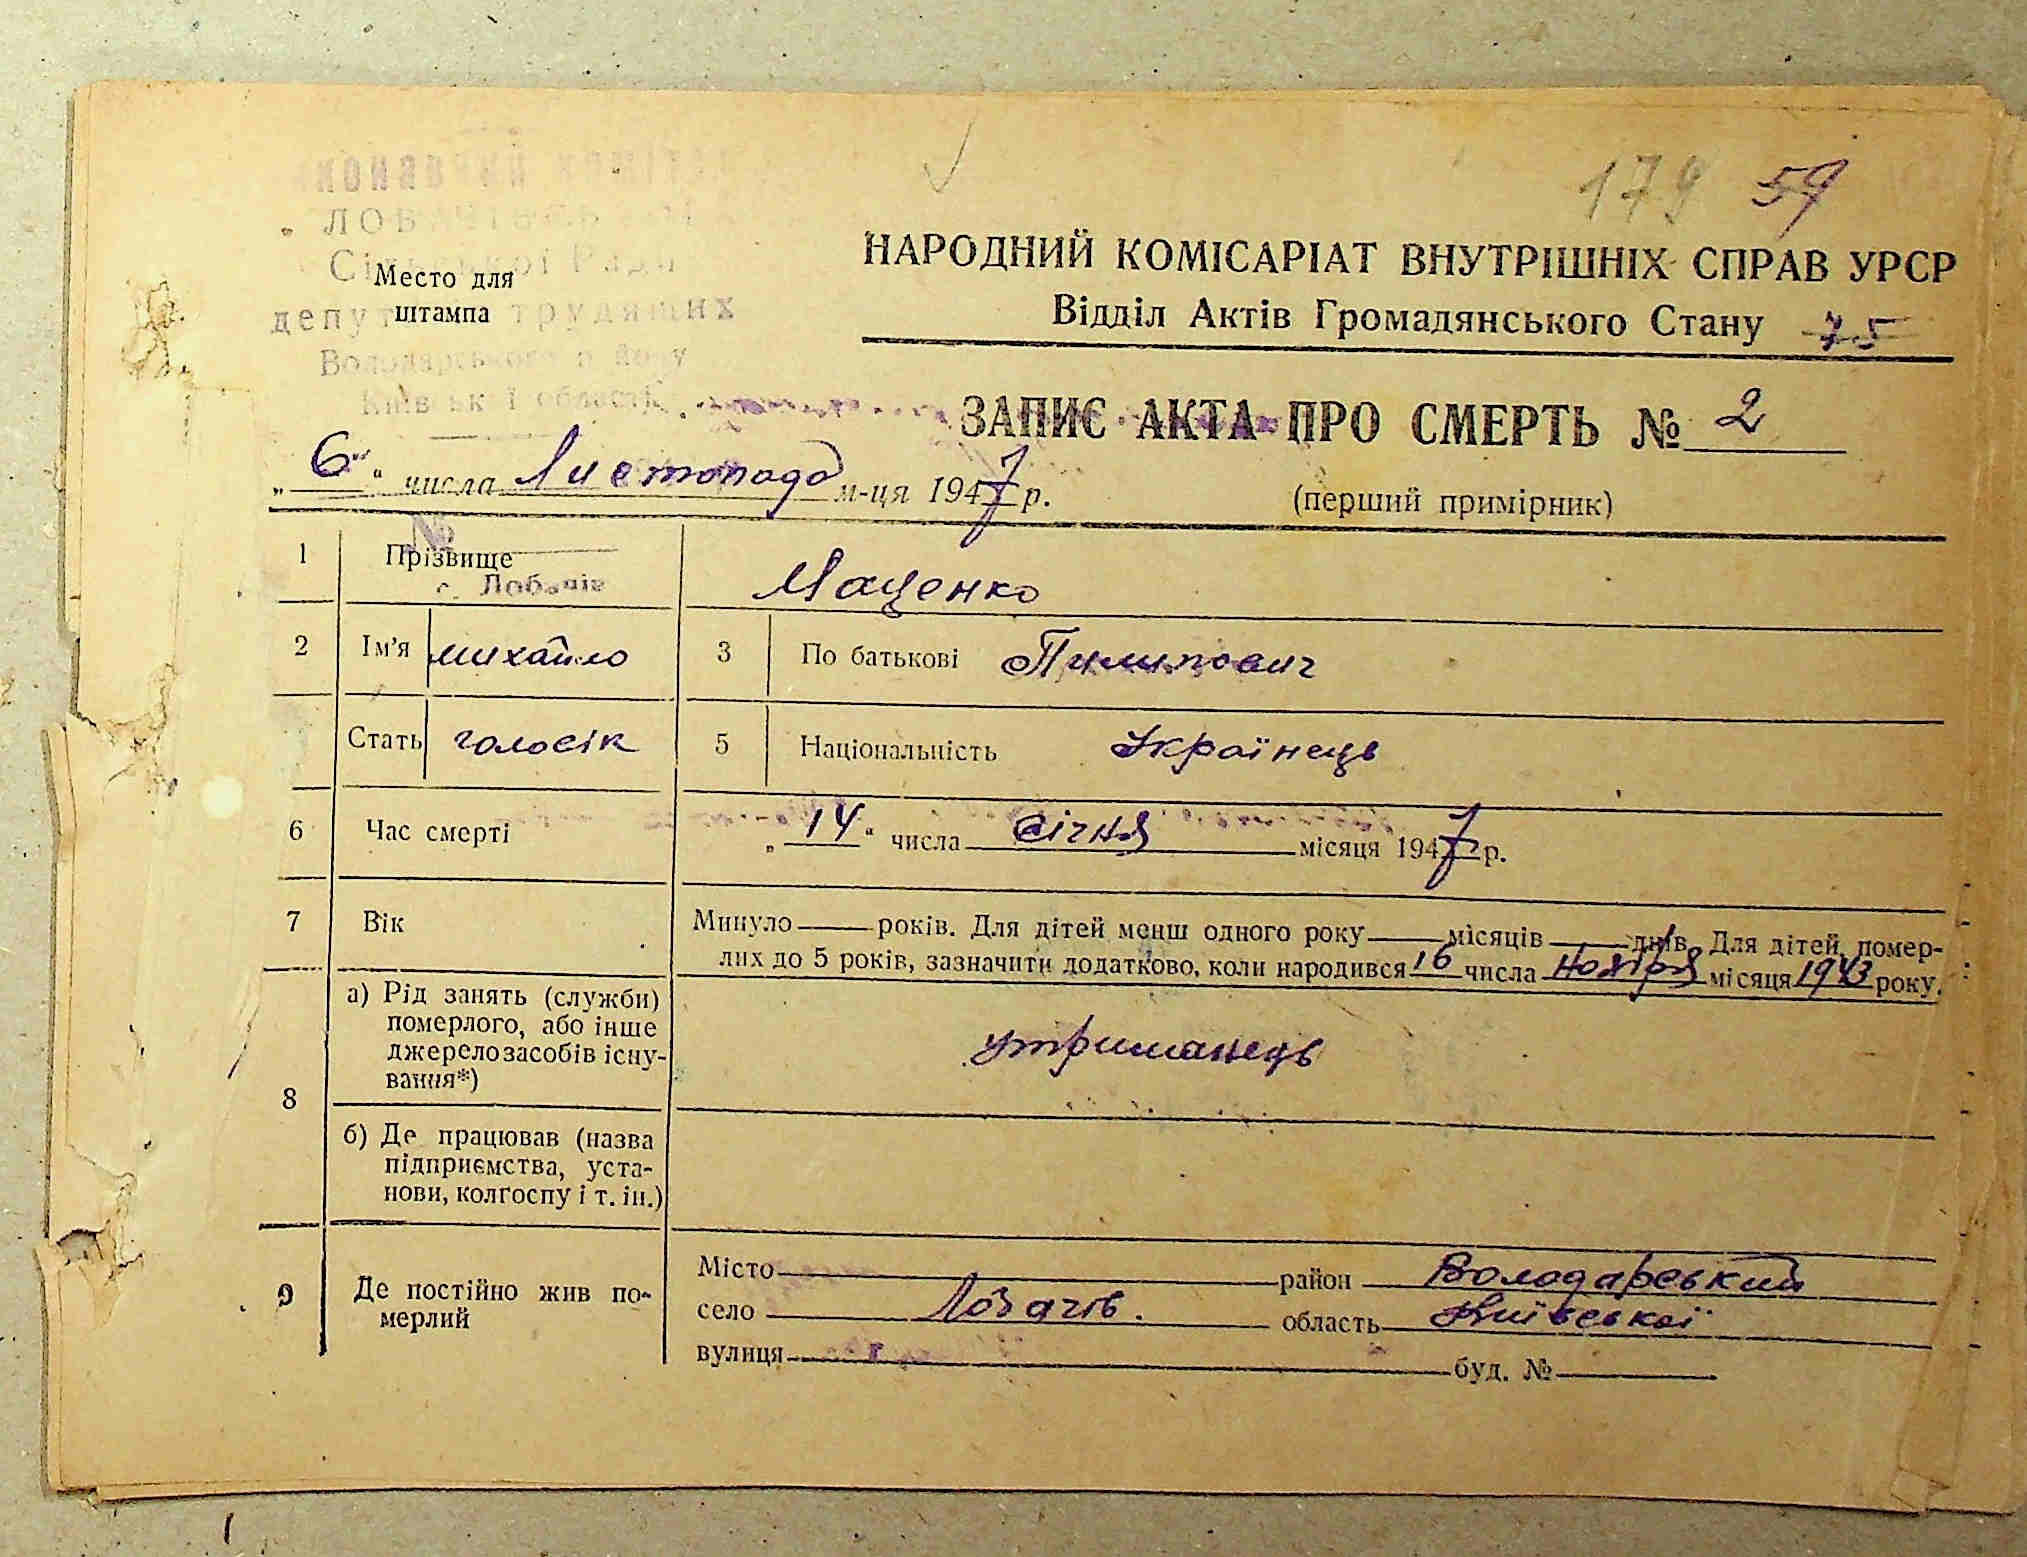 179 59
ЛОБАЧІВСЬКИЙ
Сільської Ради
депут трудящих
Володарського району
Київської області
Место для
штампа
НАРОДНИЙ КОМІСАРІАТ ВНУТРІШНІХ СПРАВ УРСР
Відділ Актів Громадянського Стану 75
ЗАПИС АКТА ПРО СМЕРТЬ № 2
„6“ числа Листопада м-ця 1947 р. (перший примірник)
№
1 Прізвище Маценко
с. Лобачів
2 Ім'я михайло 3 По батькові Пилипович
Стать чоловік 5 Національність Українець
6 Час смерті „14“ числа січня місяця 1947 р.
7 Вік Минуло — років. Для дітей менш одного року — місяців — днів. Для дітей, помер-
лих до 5 років, зазначити додатково, коли народився 16 числа ноября місяця 1943 року.
8 а) Рід занять (служби)
померлого, або інше
джерело засобів існу-
вання*)
утриманець
б) Де працював (назва
підприємства, уста-
нови, колгоспу і т. ін.)
9 Де постійно жив по-
мерлий
Місто район Володарський
село Лобачів. область Київської
вулиця буд. №